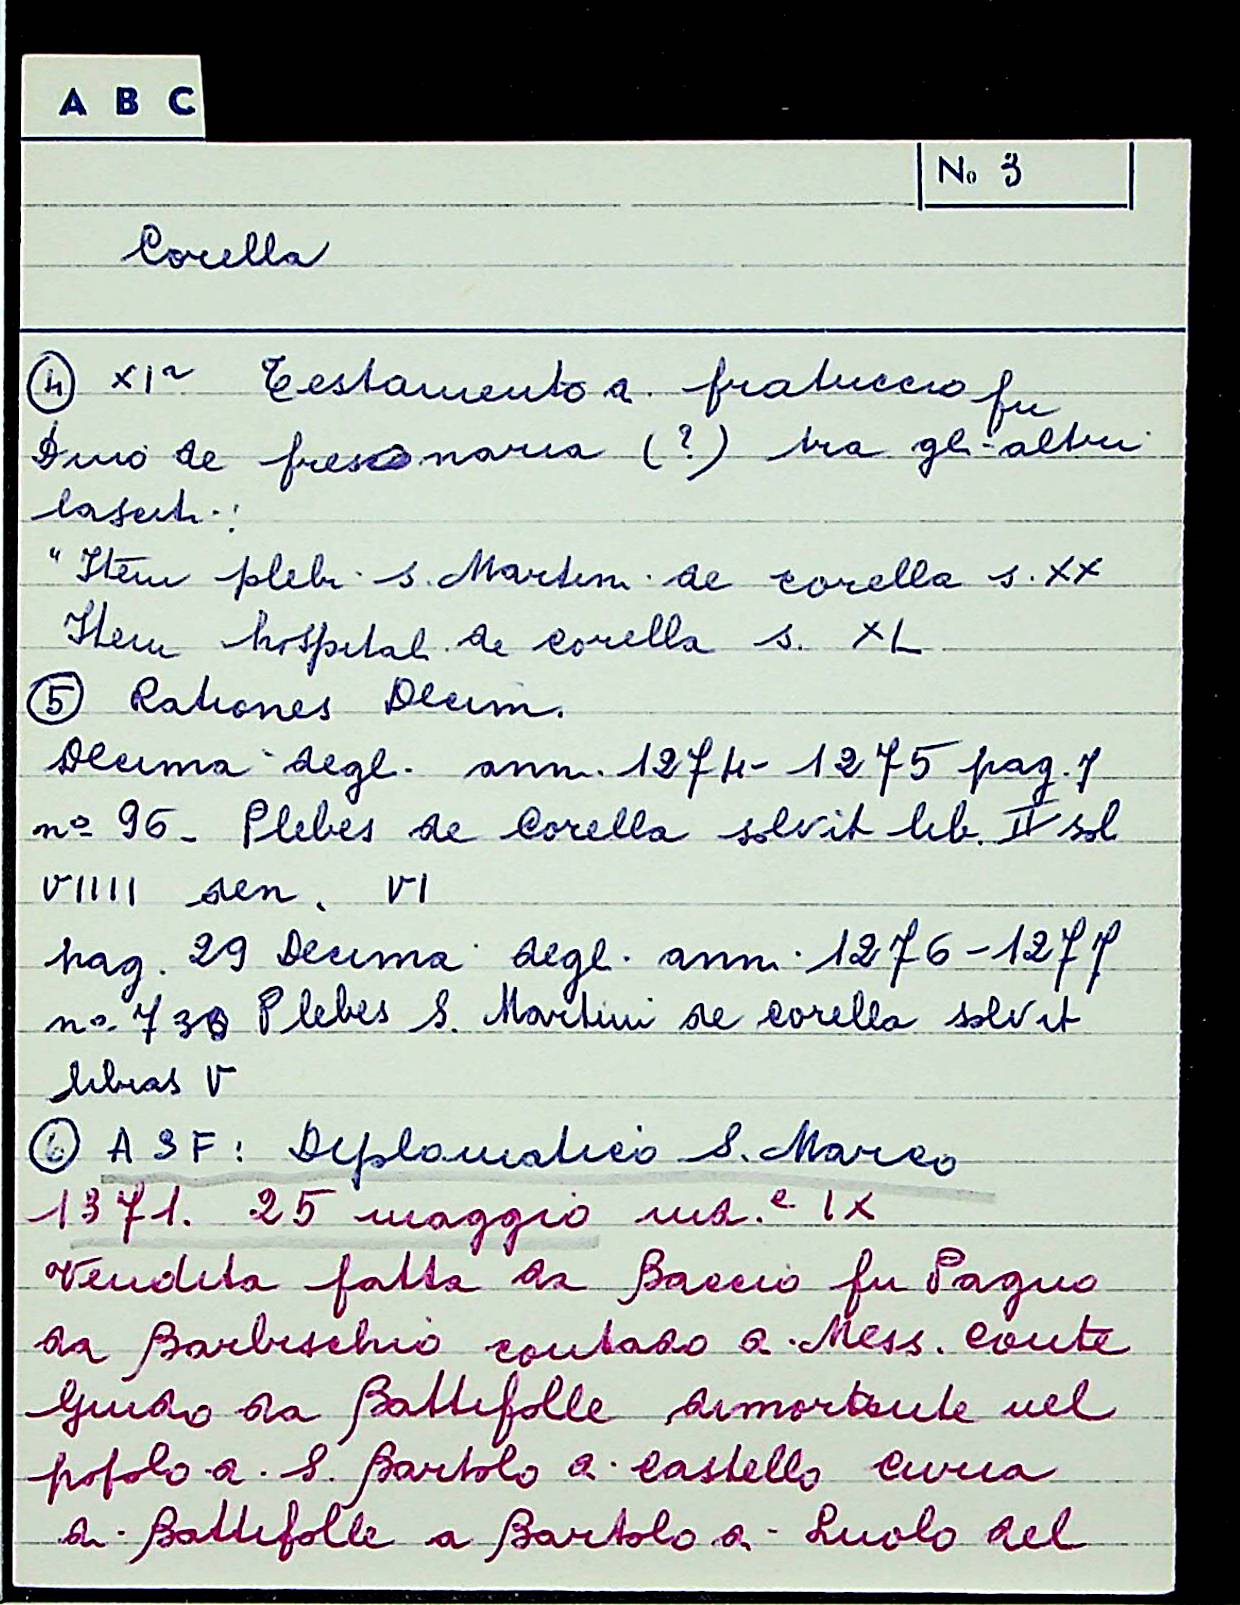 A B C
No 3
Corella
④ XIa Testamento di fratuccio fu
Duio de fresconaria (?) tra gli altri
lasciti:
"Item plebi S. Martini de Corella s. XX
Item hospitali de Corella s. XL
⑤ Rationes Decim.
Decima degli anni 1274-1275 pag. 7
nº 96- Plebes de Corella solvit lib. II sol
VIIII den. VI
pag. 29 Decima degli anni 1276-1277
nº 738 Plebes S. Martini de Corella solvit
libras V
⑥ ASF: Diplomatico S. Marco
1371. 25 maggio ind.e IX
Vendita fatta da Baccio fu Pagno
da Barbischio contado di Mess. Conte
Guido da Battifolle dimorante nel
popolo di S. Bartolo a Castello curia
di Battifolle a Bartolo di Luolo del